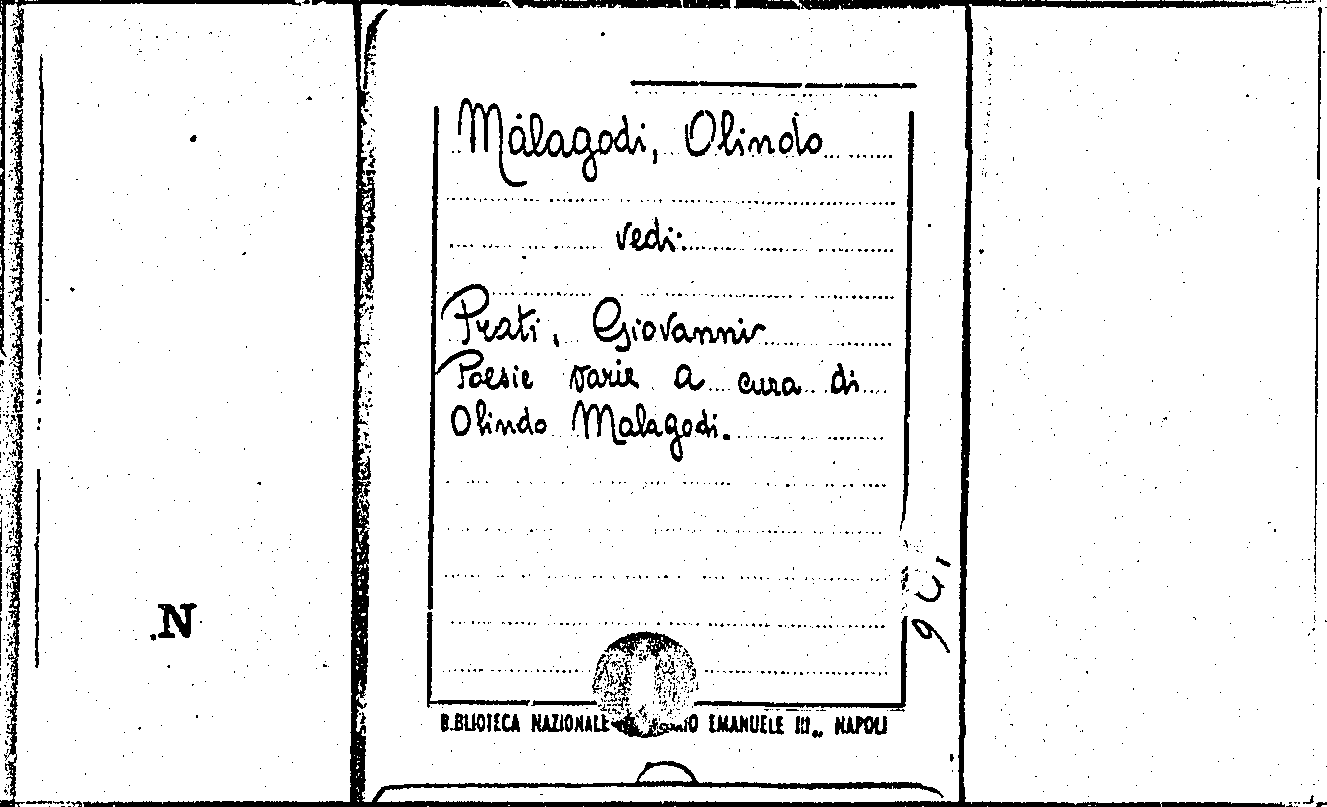 Malagodi, Olindo
vedi:
Prati, Giovanni
Poesie varie a cura di
Olindo Malagodi.
.N
B.BLIOTECA NAZIONALE EMANUELE III,, NAPOLI